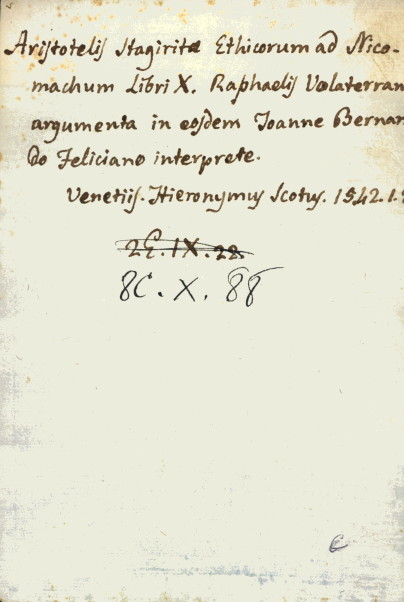 Aristotelis Stagiritæ Ethicorum ad Nico-
machum Libri X. Raphaelis Volaterran
argumenta in eosdem Joanne Bernar
do Feliciano interprete.
Venetiis. Hieronymus Scotus. 1542. 1.
2E. IX. 22
8C. X. 88
C